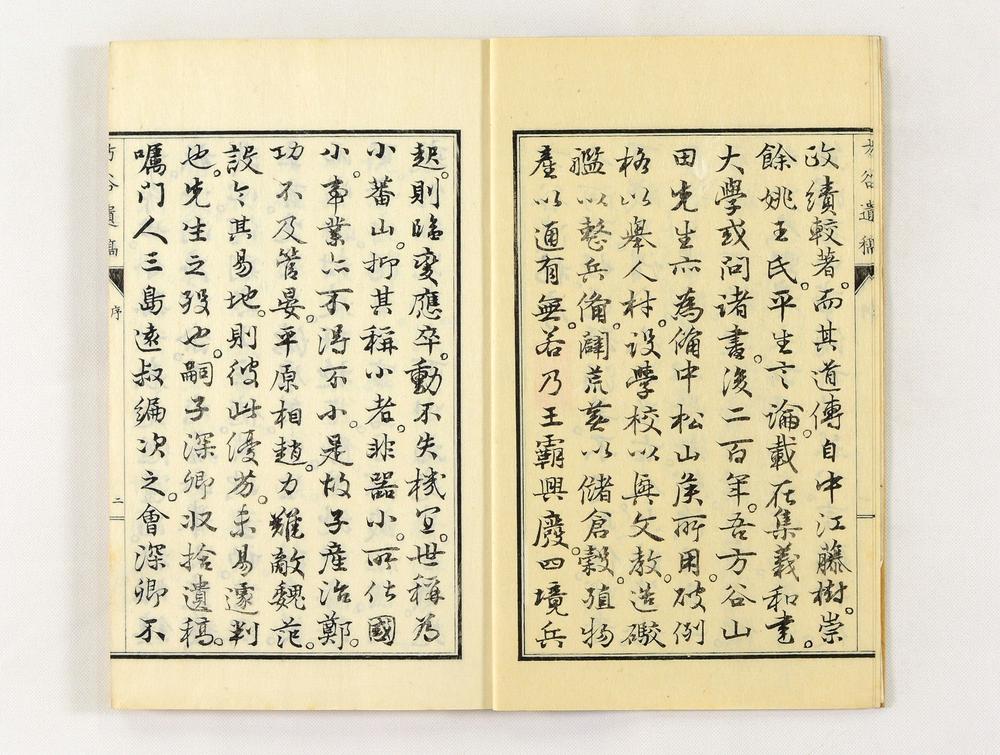 方谷遺稿
政績較著。而其道傳自中江藤樹。崇
餘姚王氏。平生言論。載在集義和書。
大學或問諸書。後二百年。吾方谷山
田先生亦為備中松山侯所用。破例
格以舉人材。設學校以興文教。造礮
艦以整兵備。闢荒蕪以儲倉穀。殖物
產以通有無。若乃王霸興廢。四境兵
起。則臨變應卒。動不失機宜。世稱為
小蕃山。抑其稱小者。非器小。所仕國
小。事業亦不得不小。是故子產治鄭。
功不及管晏。平原相趙。力難敵魏范。
設令其易地。則彼此優劣。未易遽判
也。先生之歿也。嗣子深卿收拾遺稿。
囑門人三島遠叔編次之。會深卿不
方谷遺稿
序
二